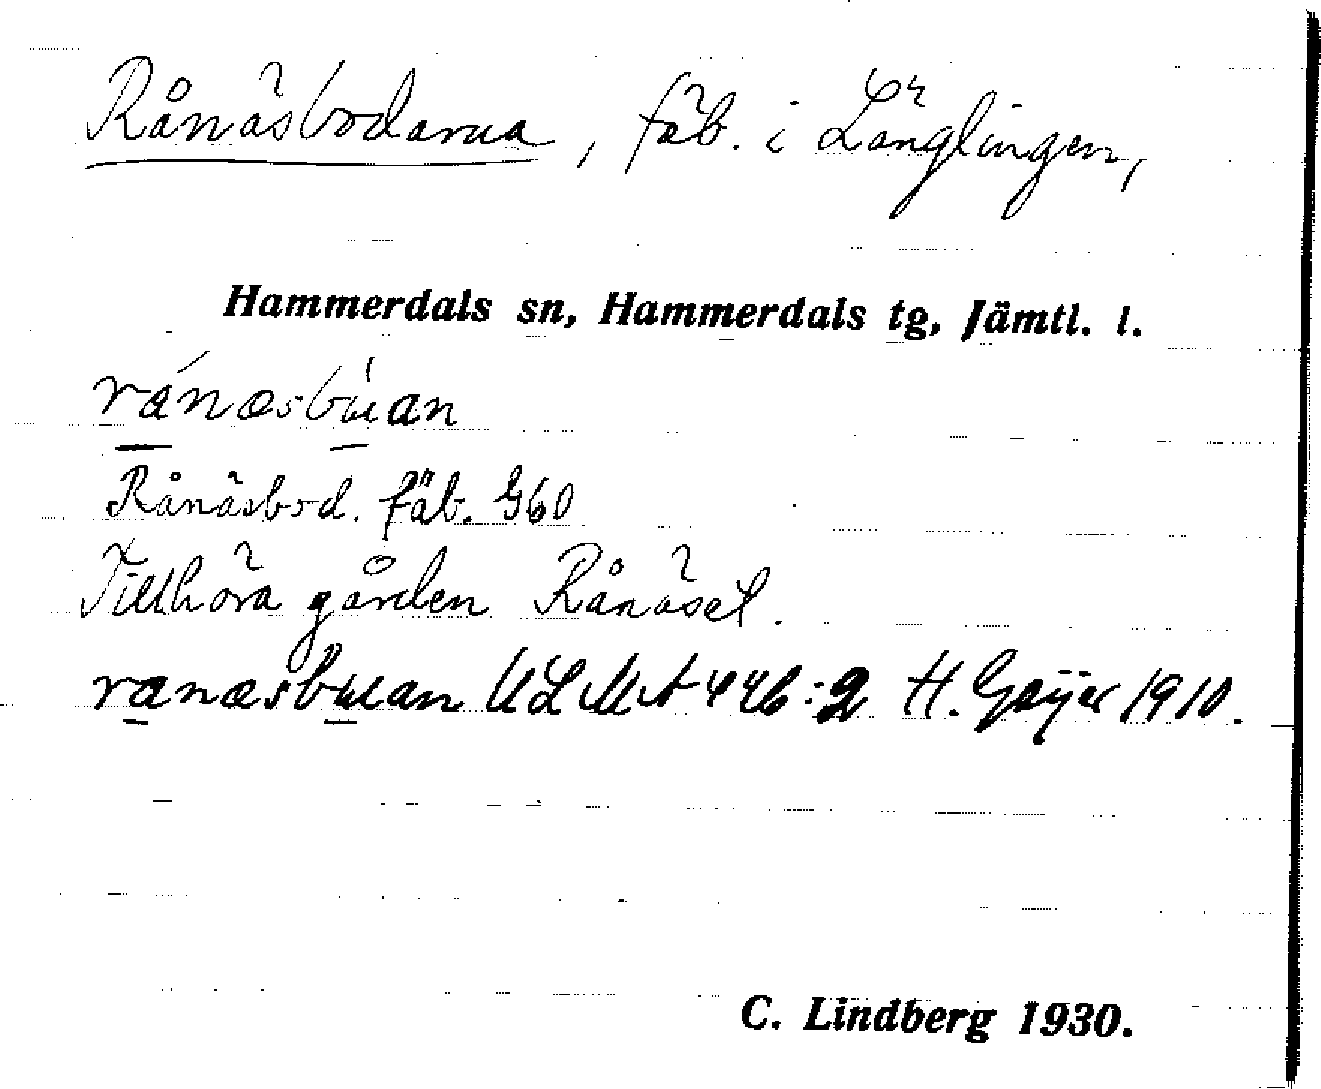 Rånäsbodarna, fäb. i Långlingen,
Hammerdals sn, Hammerdals tg, Jämtl. l.
ránæsbu̍an
Rånäsbod. fäb. G60
Tillhöra gården Rånäset.
ranæsbuan ULMA 446:2 H. Geijer 1910.
C. Lindberg 1930.